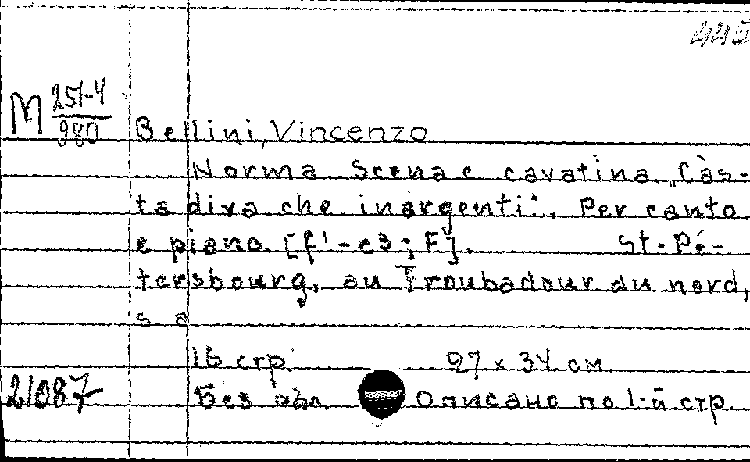 445
M 251-4
980
Bellini, Vincenzo
Norma Scena e cavatina „Càs-
ta diva che inargenti". Per canto
e piano. [f'-c3; F]. St.-Pé-
tersbourg, au Troubadour du nord,
s a
16 стр. 27 x 34 см
21087 Без обл Описано по 1-й стр